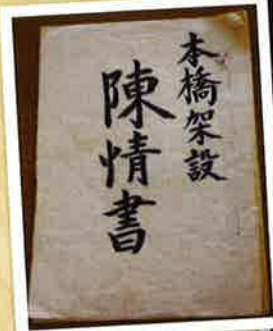 本橋架設
陳情書